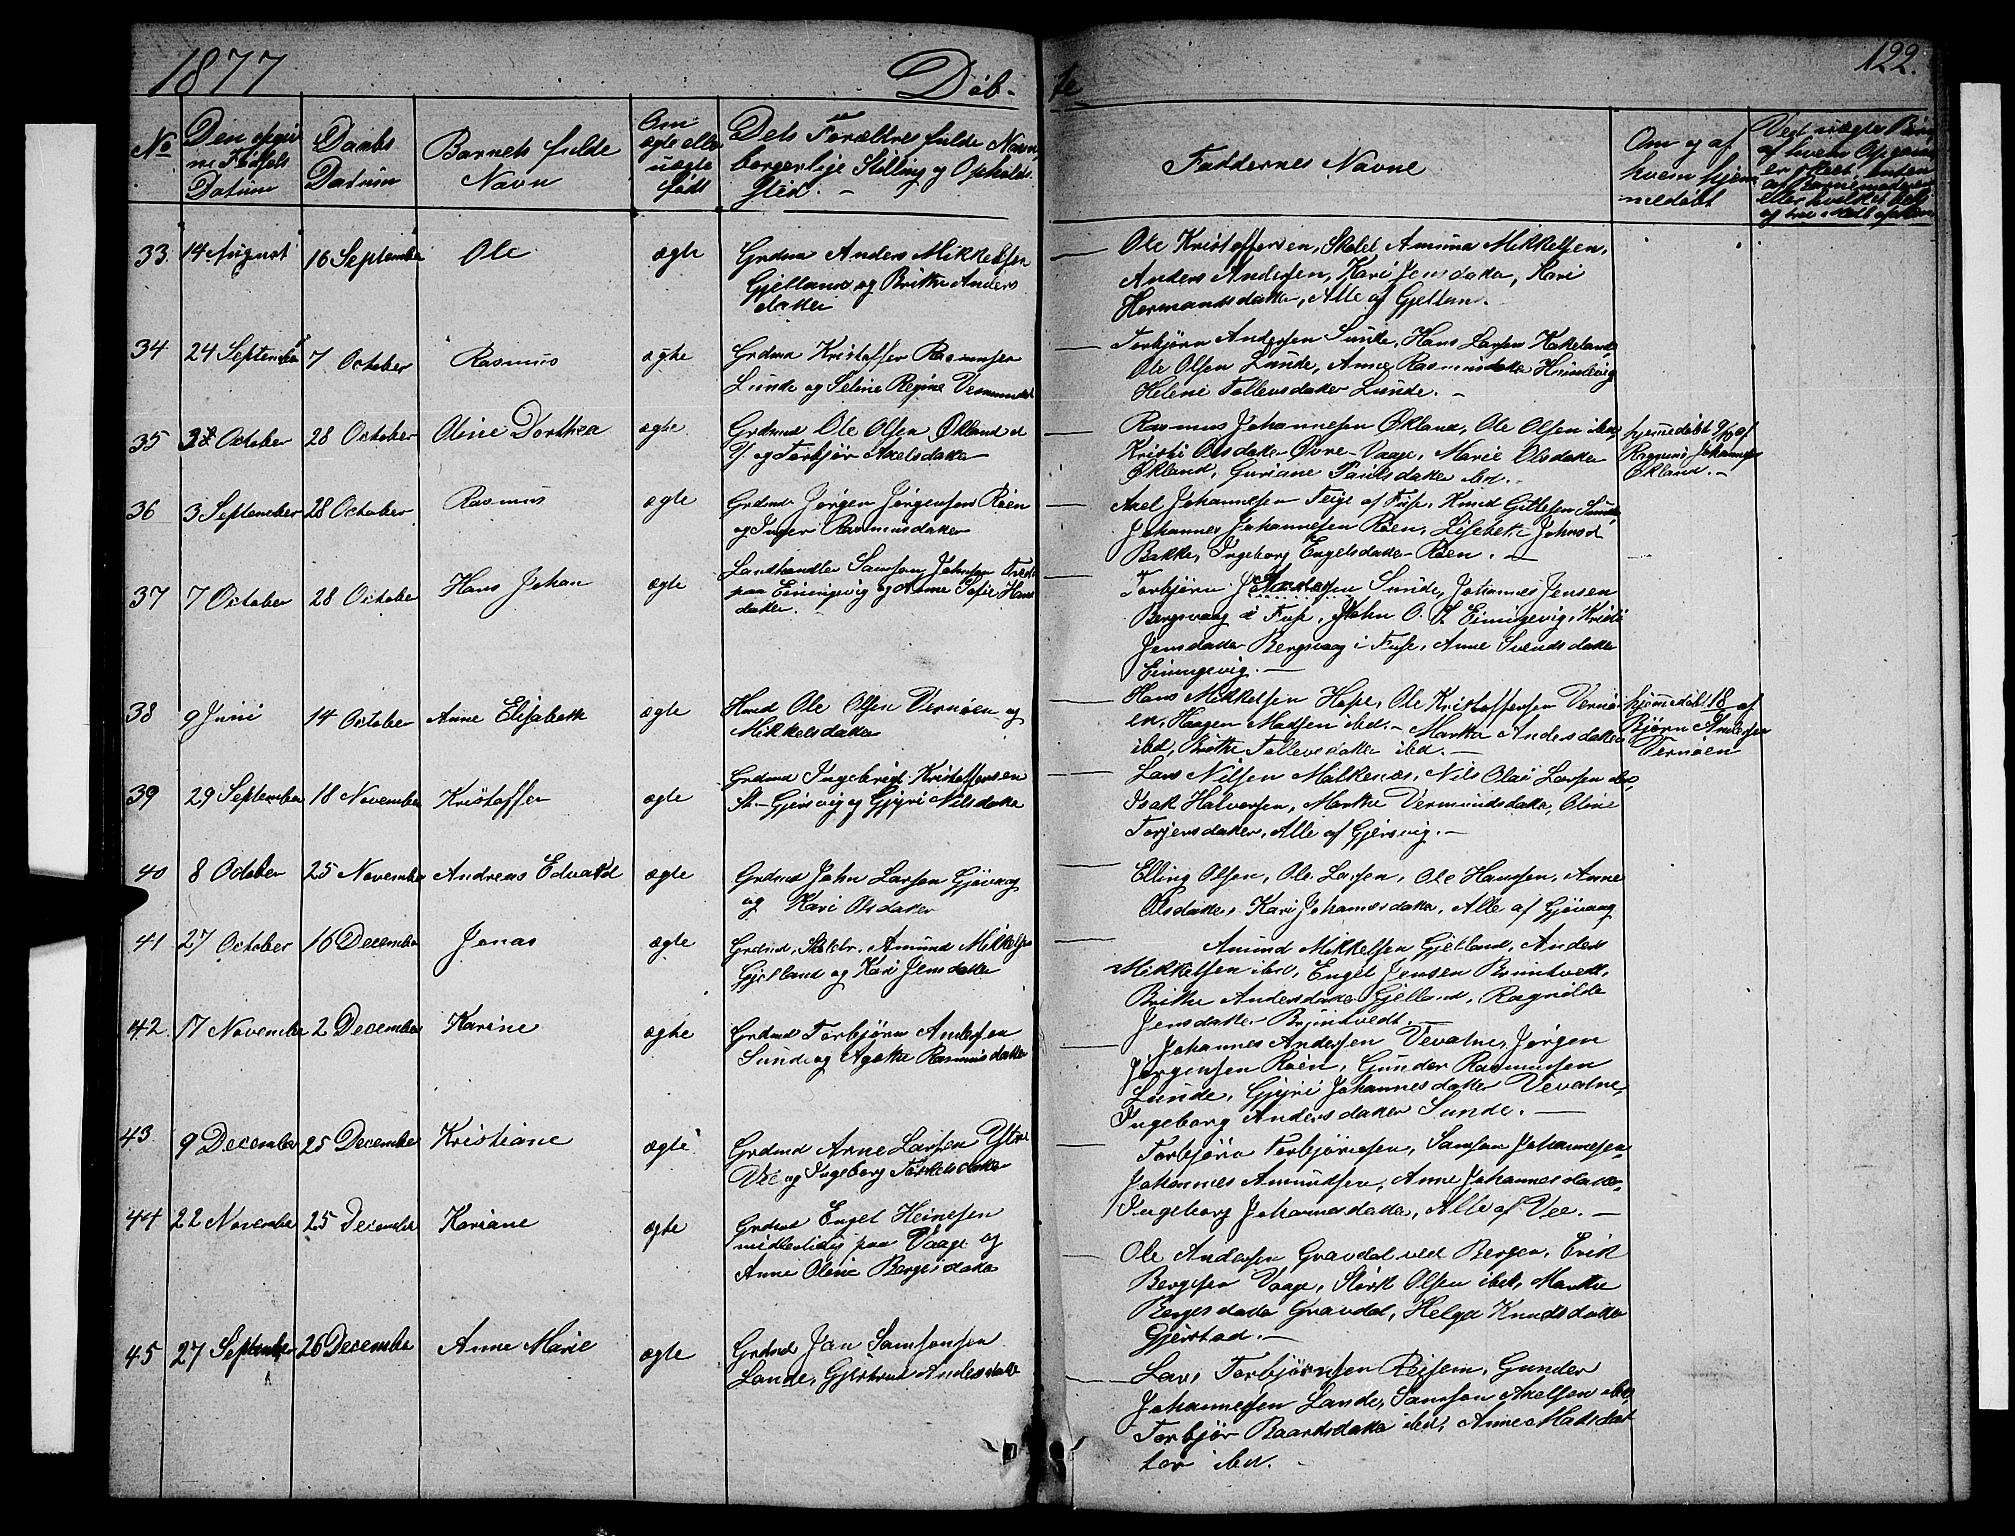 1877
Døb-
te
122.
No
Den opgiv
ne Fødsels
Datum
Daabs
Datum
Barnets fulde
Navn
Om
ægte eller
uægte
født
Dets Forældres fulde Navn,
borgerlige Stilling og Opholds
Sted. -
Faddernes Navne
Om og af
hvem hjem
medøbt
Ved uægte Børn
af hvem Opgaven
er skeet, enten
af Barnemoderen
33
14 August
16 September
Ole
ægte
Grdmd Anders Mikkelsen
Gjelland og Brithe Anders
datter
Ole Kristoffersen, Skolel Amund Mikkelsen,
Anders Andersen, Kari Jensdatter, Kari
Hermandsdatter, Alle af Gjelland.
34
24 September
7 October
Rasmus
ægte
Grdmd Kristoffer Rasmussen
Lunde og Seline Regine Vermundsd
Torbjørn Andersen Sunde, Hans Larsen Hakeland
Ole Olsen Lunde, Anne Rasmusdatter Humlevig
Helene Tollevsdatter Lunde. -
35
October
28 October
Oline Dorthea
ægte
Grdmd Ole Olsen Økland
og Torbjør Axelsdatter
Rasmus Johannesen Økland, Ole Olsen ibed,
Kristi Olsdatter Øvre-Vaage, Marie Olsdatter
Økland, Guriane Paulsdatter ibd. -
hjemmedøbt 9/10 af
Rasmus Johannes
Økland. -
36
3 September
28 October
Rasmus
ægte
Grdmd Jørgen Jørgensen Røen
og Inger Rasmusdatter
Axel Johannesen Teige af Fuse, Knud Gittlesen Sunde
Johannes Johannesen Røen, Lisebet Johnsd
Bakke, Ingeborg Engelsdatter Røen. -
37
7 October
28 October
Hans Johan
ægte
Landhandler Samson Johnson
paa Einingevig og Anne Sofie Hans
datter.
Torbjørn Andersen Sunde, Johannes Jensen
Bergsvaag i Fuse, John O. S. Einingevig, Kristi
Jensdatter Bergsvaag i Fuse, Anne Svendsdatter
Einingevig. -
38
9 Juni
14 October
Anne Elisabeth
ægte
Hmd Ole Olsen Vernøen og
Mikkelsdatter
Hans Mikkelsen Hope, Ole Kristoffersen Vernø-
en, Haagen Madsen ibed. - Martha Andersdatter
ibd, Brithe Tollevsdatter ibed. -
hjemmedøbt 18 af
Bjørn Andersen
Vernøen
39
29 September
18 November
Kristoffer
ægte
Grdmd Ingebrigt Kristoffersen
St-Gjersvig og Gjyri Nilsdatter
Lars Nilsen Malkenes, Nils Olai Larsen ibd,
Isak Halvorsen, Marthe Vermundsdatter, Oline
Torjersdatter, Alle af Gjersvig. -
40
8 October
25 November
Andreas Edvard
ægte
Grdmd John Larsen Gjøvaag
og Kari Olsdatter
Elling Olsen, Ole Larsen, Ole Hansen, Anne
Olsdatter, Kari Johannesdatter, Alle af Gjøvaag
41
27 October
16 December
Jonas
ægte
Grdmd, Skolelr. Amund Mikkelsen
Gjelland og Kari Jensdatter
Amund Mikkelsen Gjelland, Anders
Mikkelsen ibed, Engel Jensen Brintvedt,
Brithe Andersdatter Gjelland, Ragnilde
Jensdatter Brintvedt. -
42
17 November
2 December
Karine
ægte
Grdmd Torbjørn Andersen
Sunde og Agathe Rasmusdatter
Johannes Andersen Vevatne, Jørgen
Jørgensen Røen, Gunder Rasmussen
Lunde, Gjyri Johannesdatter Vevatne,
Ingeborg Andersdatter Sunde. -
43
9 December
25 December
Kristiane
ægte
Grdmd Arne Larsen Ytre
Vee og Ingeborg Torkelsdatter
Torbjørn Torbjørnsen, Samson Johannesen
Johannes Amundsen, Anne Johannesdatter
Ingeborg Johannesdatter, Alle af Vee. -
44
22 November
25 December
Kariane
ægte
Grdmd Engel Heinesen
midlertidig paa Vaage og
Anne Oline Bergesdatter
Ole Andersen Gravdal ved Bergen, Erik
Bergesen Vaage, Størk Olsen ibd, Marthe
Bergesdatter Gravdal, Helga Knudsdatter
Gjerstad. -
45
27 September
26 December
Anne Marie
ægte
Grdmd Jan Samsonsen
Lande, Gjertrud Andersdatter
Lars Torbjørnsen Reisem, Gunder
Johannesen Lande, Samson Axelsen ibd,
Torbjør Baardsdatter ibed, Anne Madsdat
ter ibed.